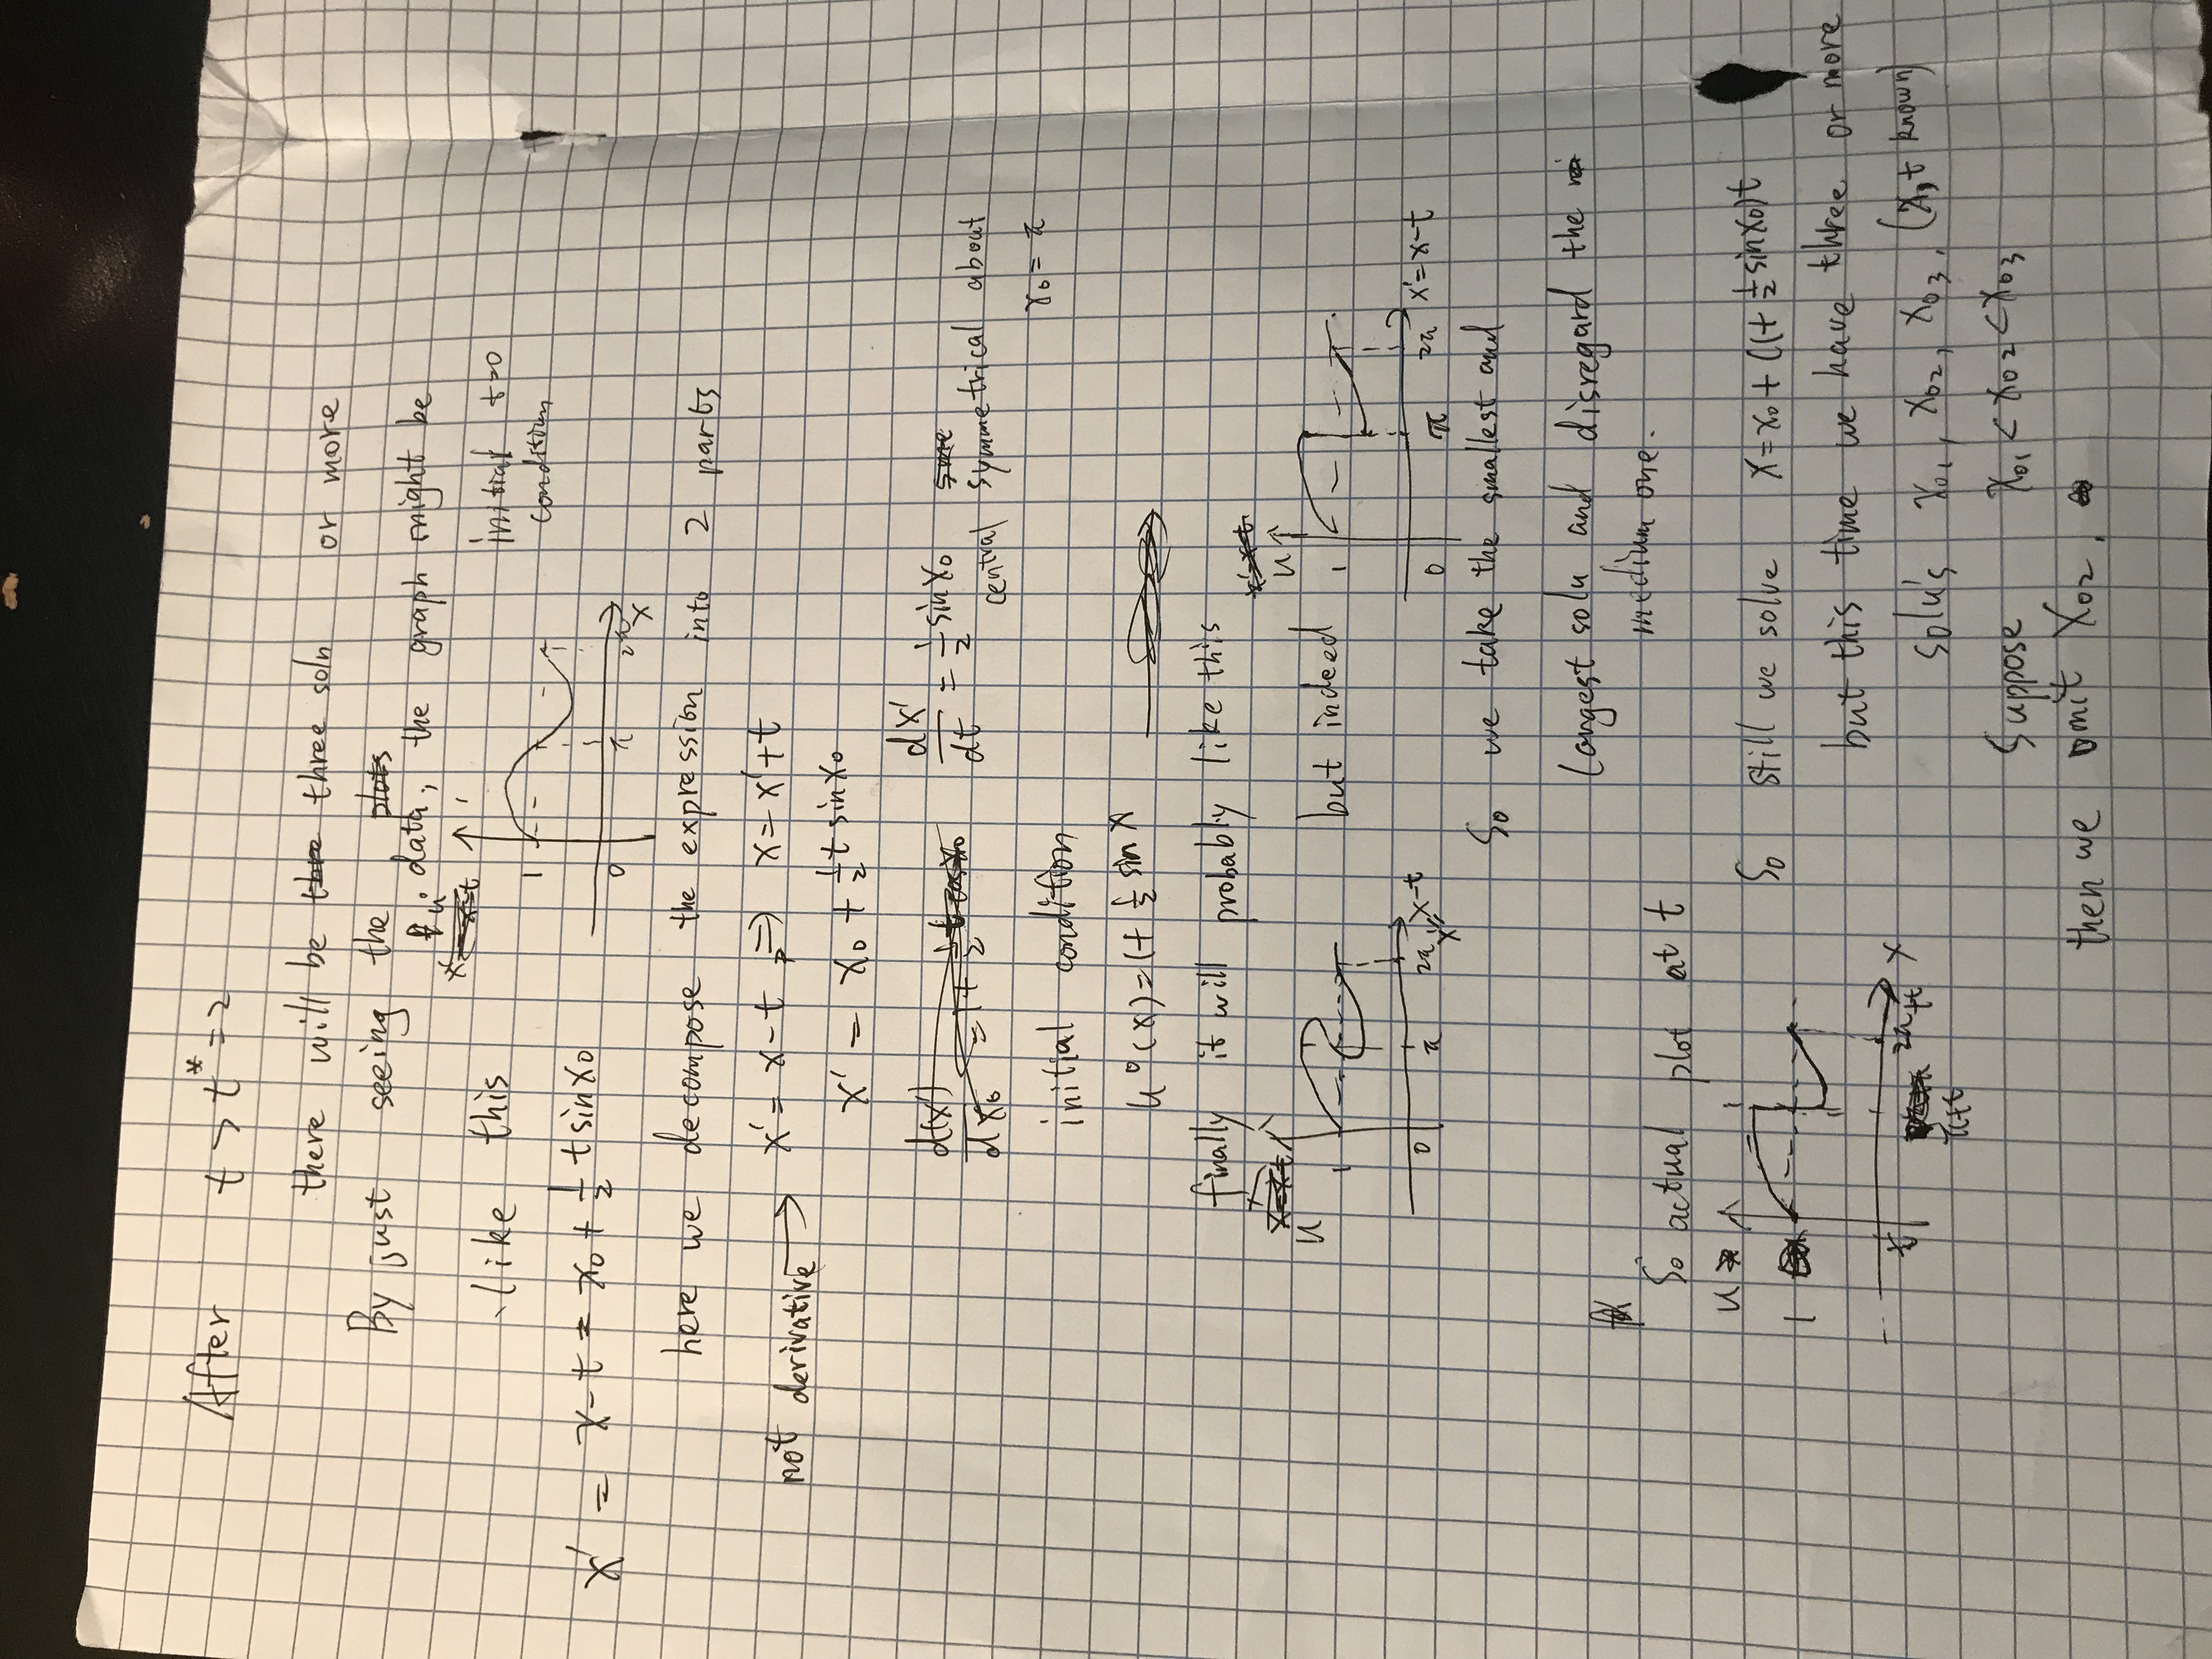 After t > t* = 2
there will be three soln or more
By just seeing the
data, the graph might be
like this
u
1
0 π 2π x
initial t=0
condition
x' = x-t = x₀ + 1/2 t sin x₀
here we decompose the expression into 2 parts
not derivative → x' = x-t ⇒ x = x'+t
x' = x₀ + 1/2 t sin x₀
dx'/dt = 1/2 sin x₀
central symmetrical about
x₀ = π
initial condition
u⁰(x) = 1 + 1/2 sin x
finally it will probably like this
u
1
0 π 2π x' = x-t
but indeed
u
1
0 π 2π x' = x-t
So we take the smallest and
largest solu and disregard the
medium one.
So actual plot at t
u
1
t π+t 2π+t x
So still we solve x = x₀ + (1 + 1/2 sin x₀)t
but this time we have three or more
solu's x₀₁, x₀₂, x₀₃, (x,t known)
Suppose x₀₁ < x₀₂ < x₀₃
then we omit x₀₂.